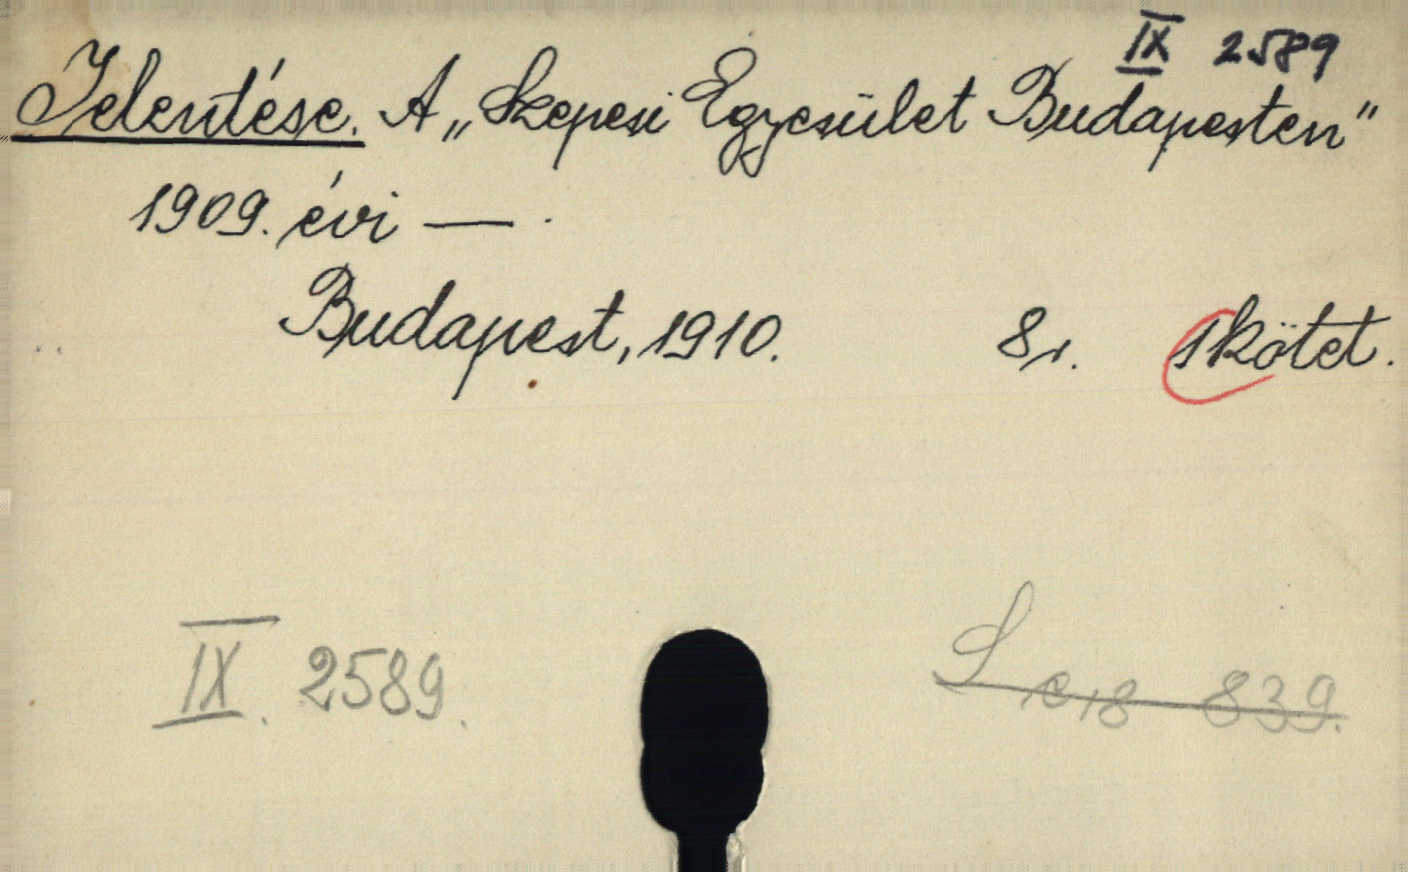 IX 2589
Jelentése. A „Szepesi Egyesület Budapesten"
1909. évi — .
Budapest, 1910. 8r. 1 kötet.
IX. 2589.
L c 18 839.